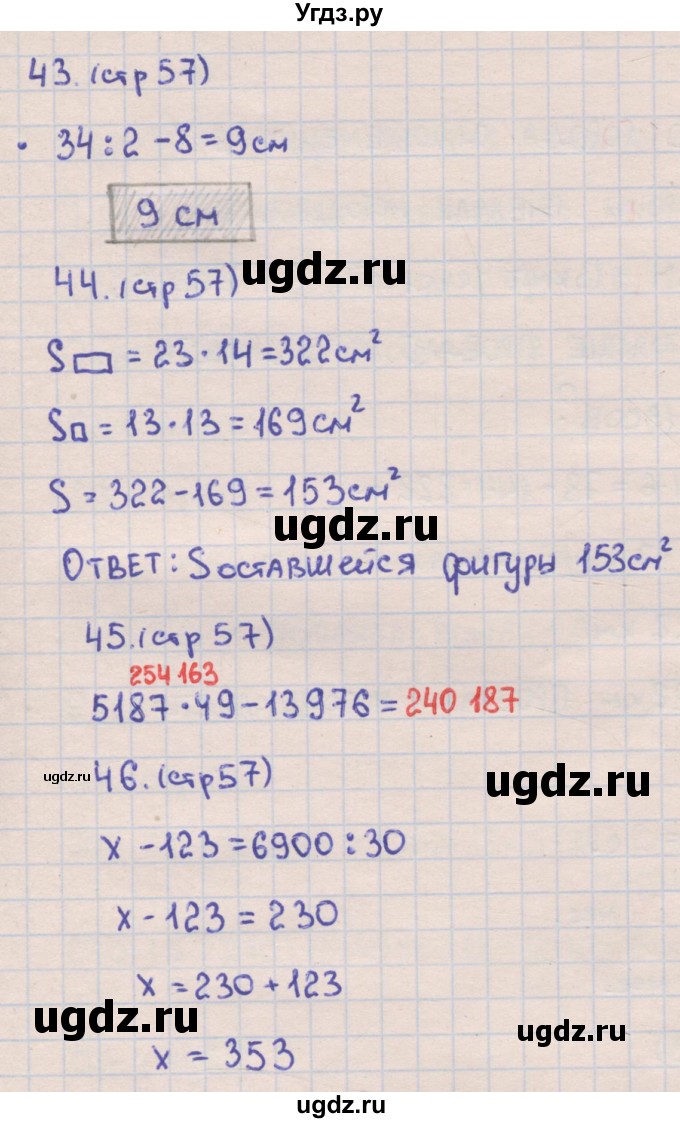 Угдз.ру
43. (стр 57)
• 34 : 2 - 8 = 9 см
9 см
ugdz.ru
44. (стр 57)
S▭ = 23 · 14 = 322 см²
S□ = 13 · 13 = 169 см²
S = 322 - 169 = 153 см²
ugdz.ru
Ответ: S оставшейся фигуры 153 см²
45. (стр 57)
254 163
5187 · 49 - 13976 = 240 187
ugdz.ru
46. (стр 57)
ugdz.ru
x - 123 = 6900 : 30
x - 123 = 230
x = 230 + 123
ugdz.ru
ugdz.ru
x = 353
ugdz.ru